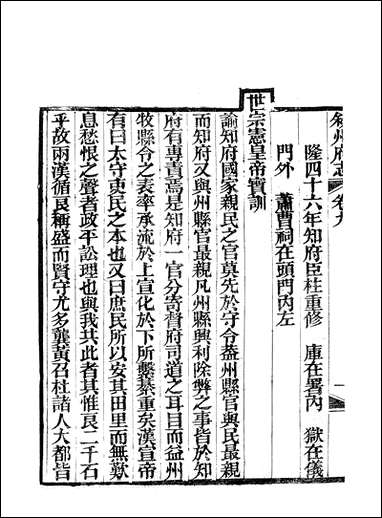 敘州府志 卷九
隆四十六年知府臣杜重修 庫在署內 獄在儀
門外 蕭曹祠在頭門內左
世宗憲皇帝寶訓
諭知府國家親民之官莫先於守令蓋州縣官與民最親
而知府又與州縣官最親凡州縣興利除弊之事皆於知
府有專責焉是知府一官分寄督府司道之耳目而益州
牧縣令之表率承流於上宣化於下所繫綦重矣漢宣帝
有曰太守吏民之本也又曰庶民所以安其田里而無歎
息愁恨之聲者政平訟理也與我其此者其惟良二千石
乎故兩漢循良稱盛而賢守尤多龔黃召杜諸人大都皆
一